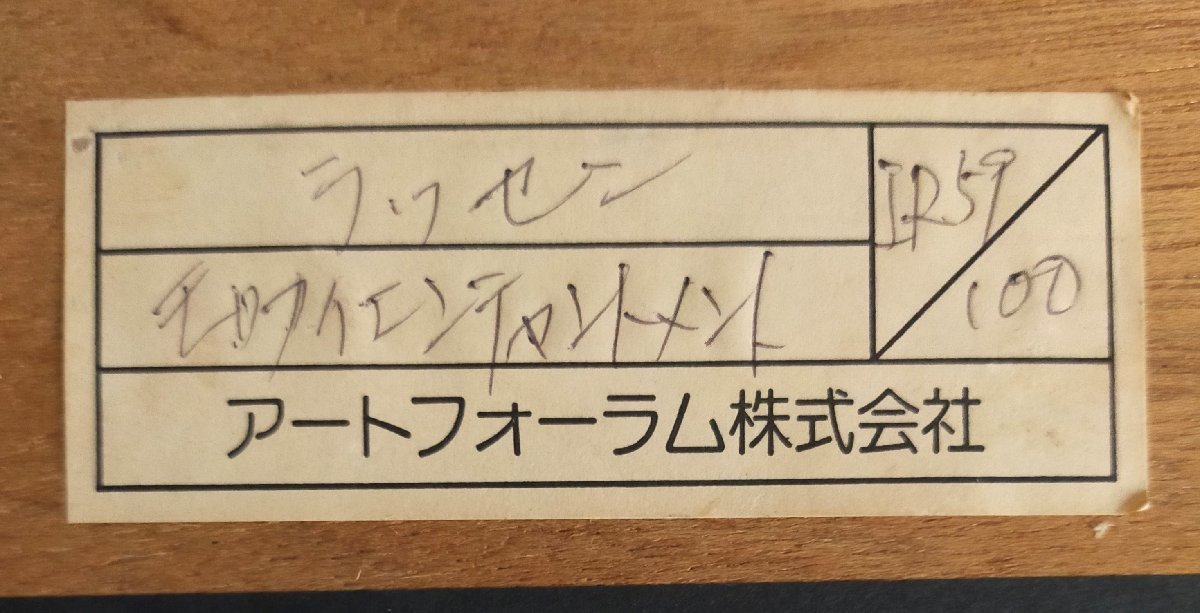 ラッセン
IR59/100
モロカイエンチャントメント
アートフォーラム株式会社